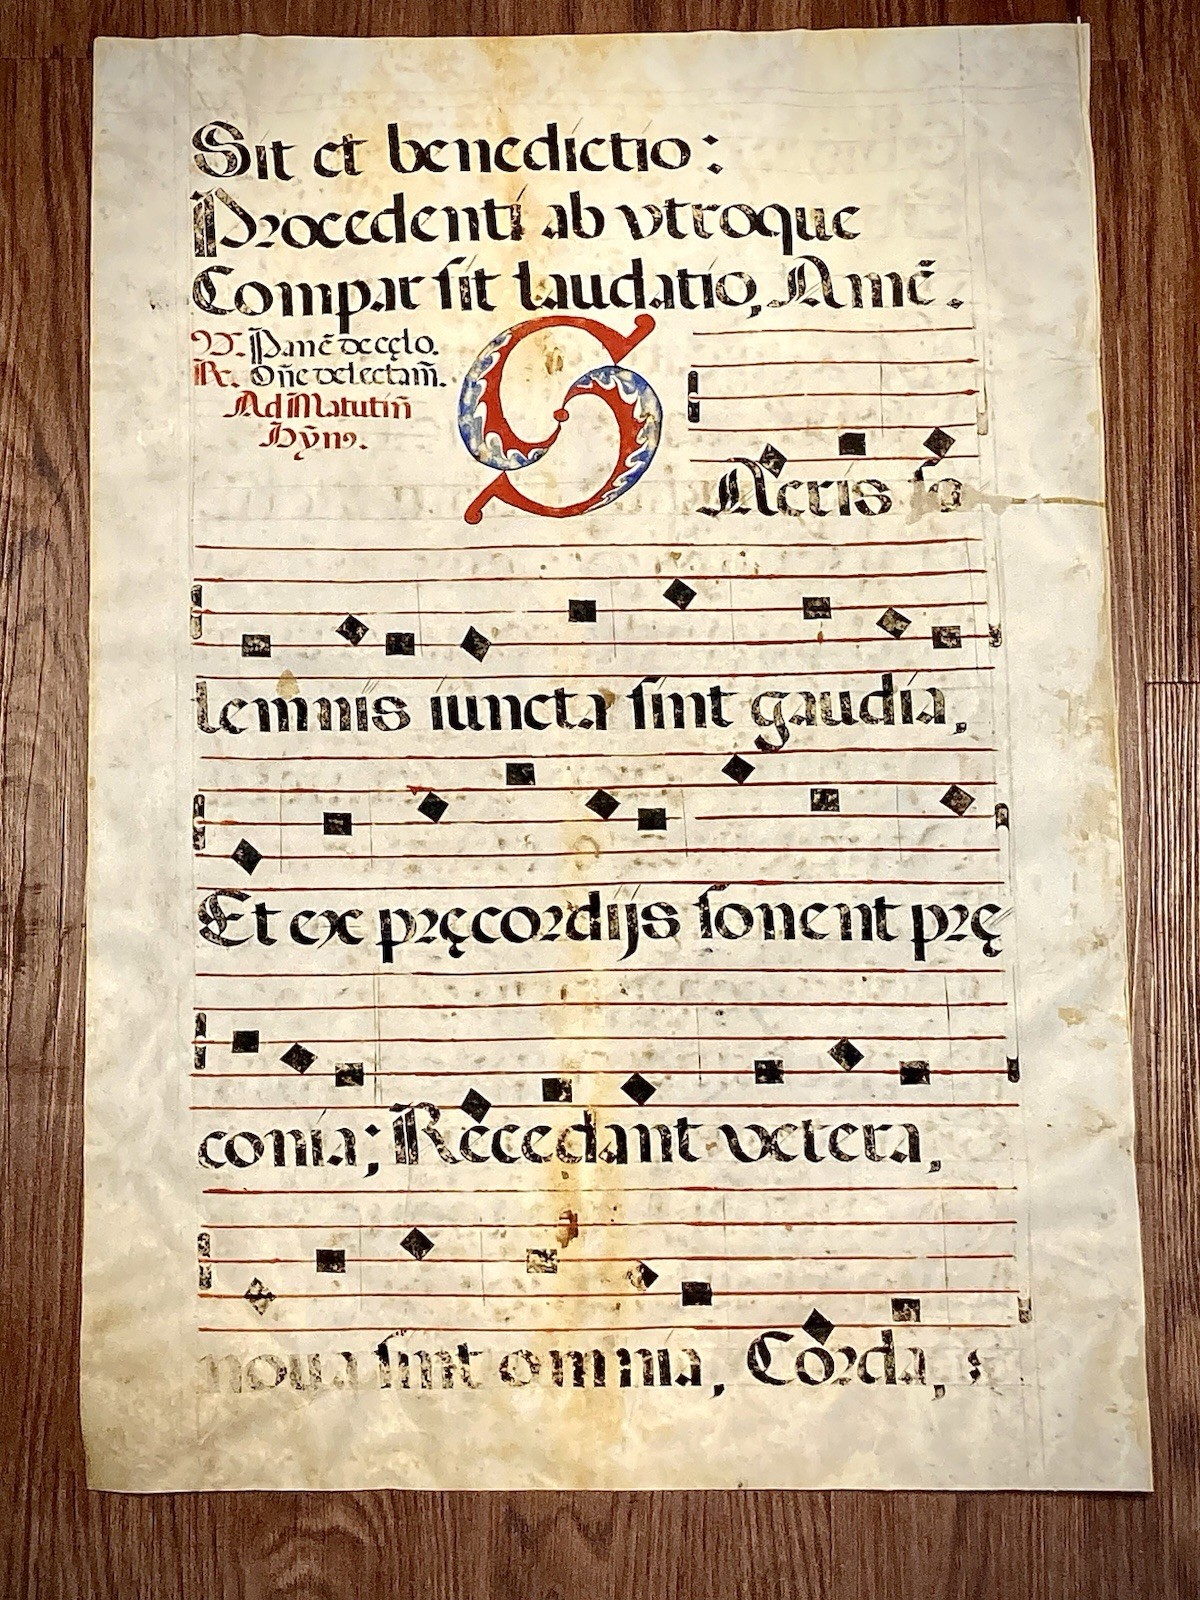 Sit et benedictio:
Procedenti ab vtroque
Compar sit laudatio, Amē.
V. Panē de cęlo.
R. Oñe delectam̄.
Ad Matutiñ
Hỹn9.
SAcris so
lemnis iuncta sint gaudia,
Et ex pręcordijs sonent prę
conia; Recedant vetera,
noua sint omnia, Corda,